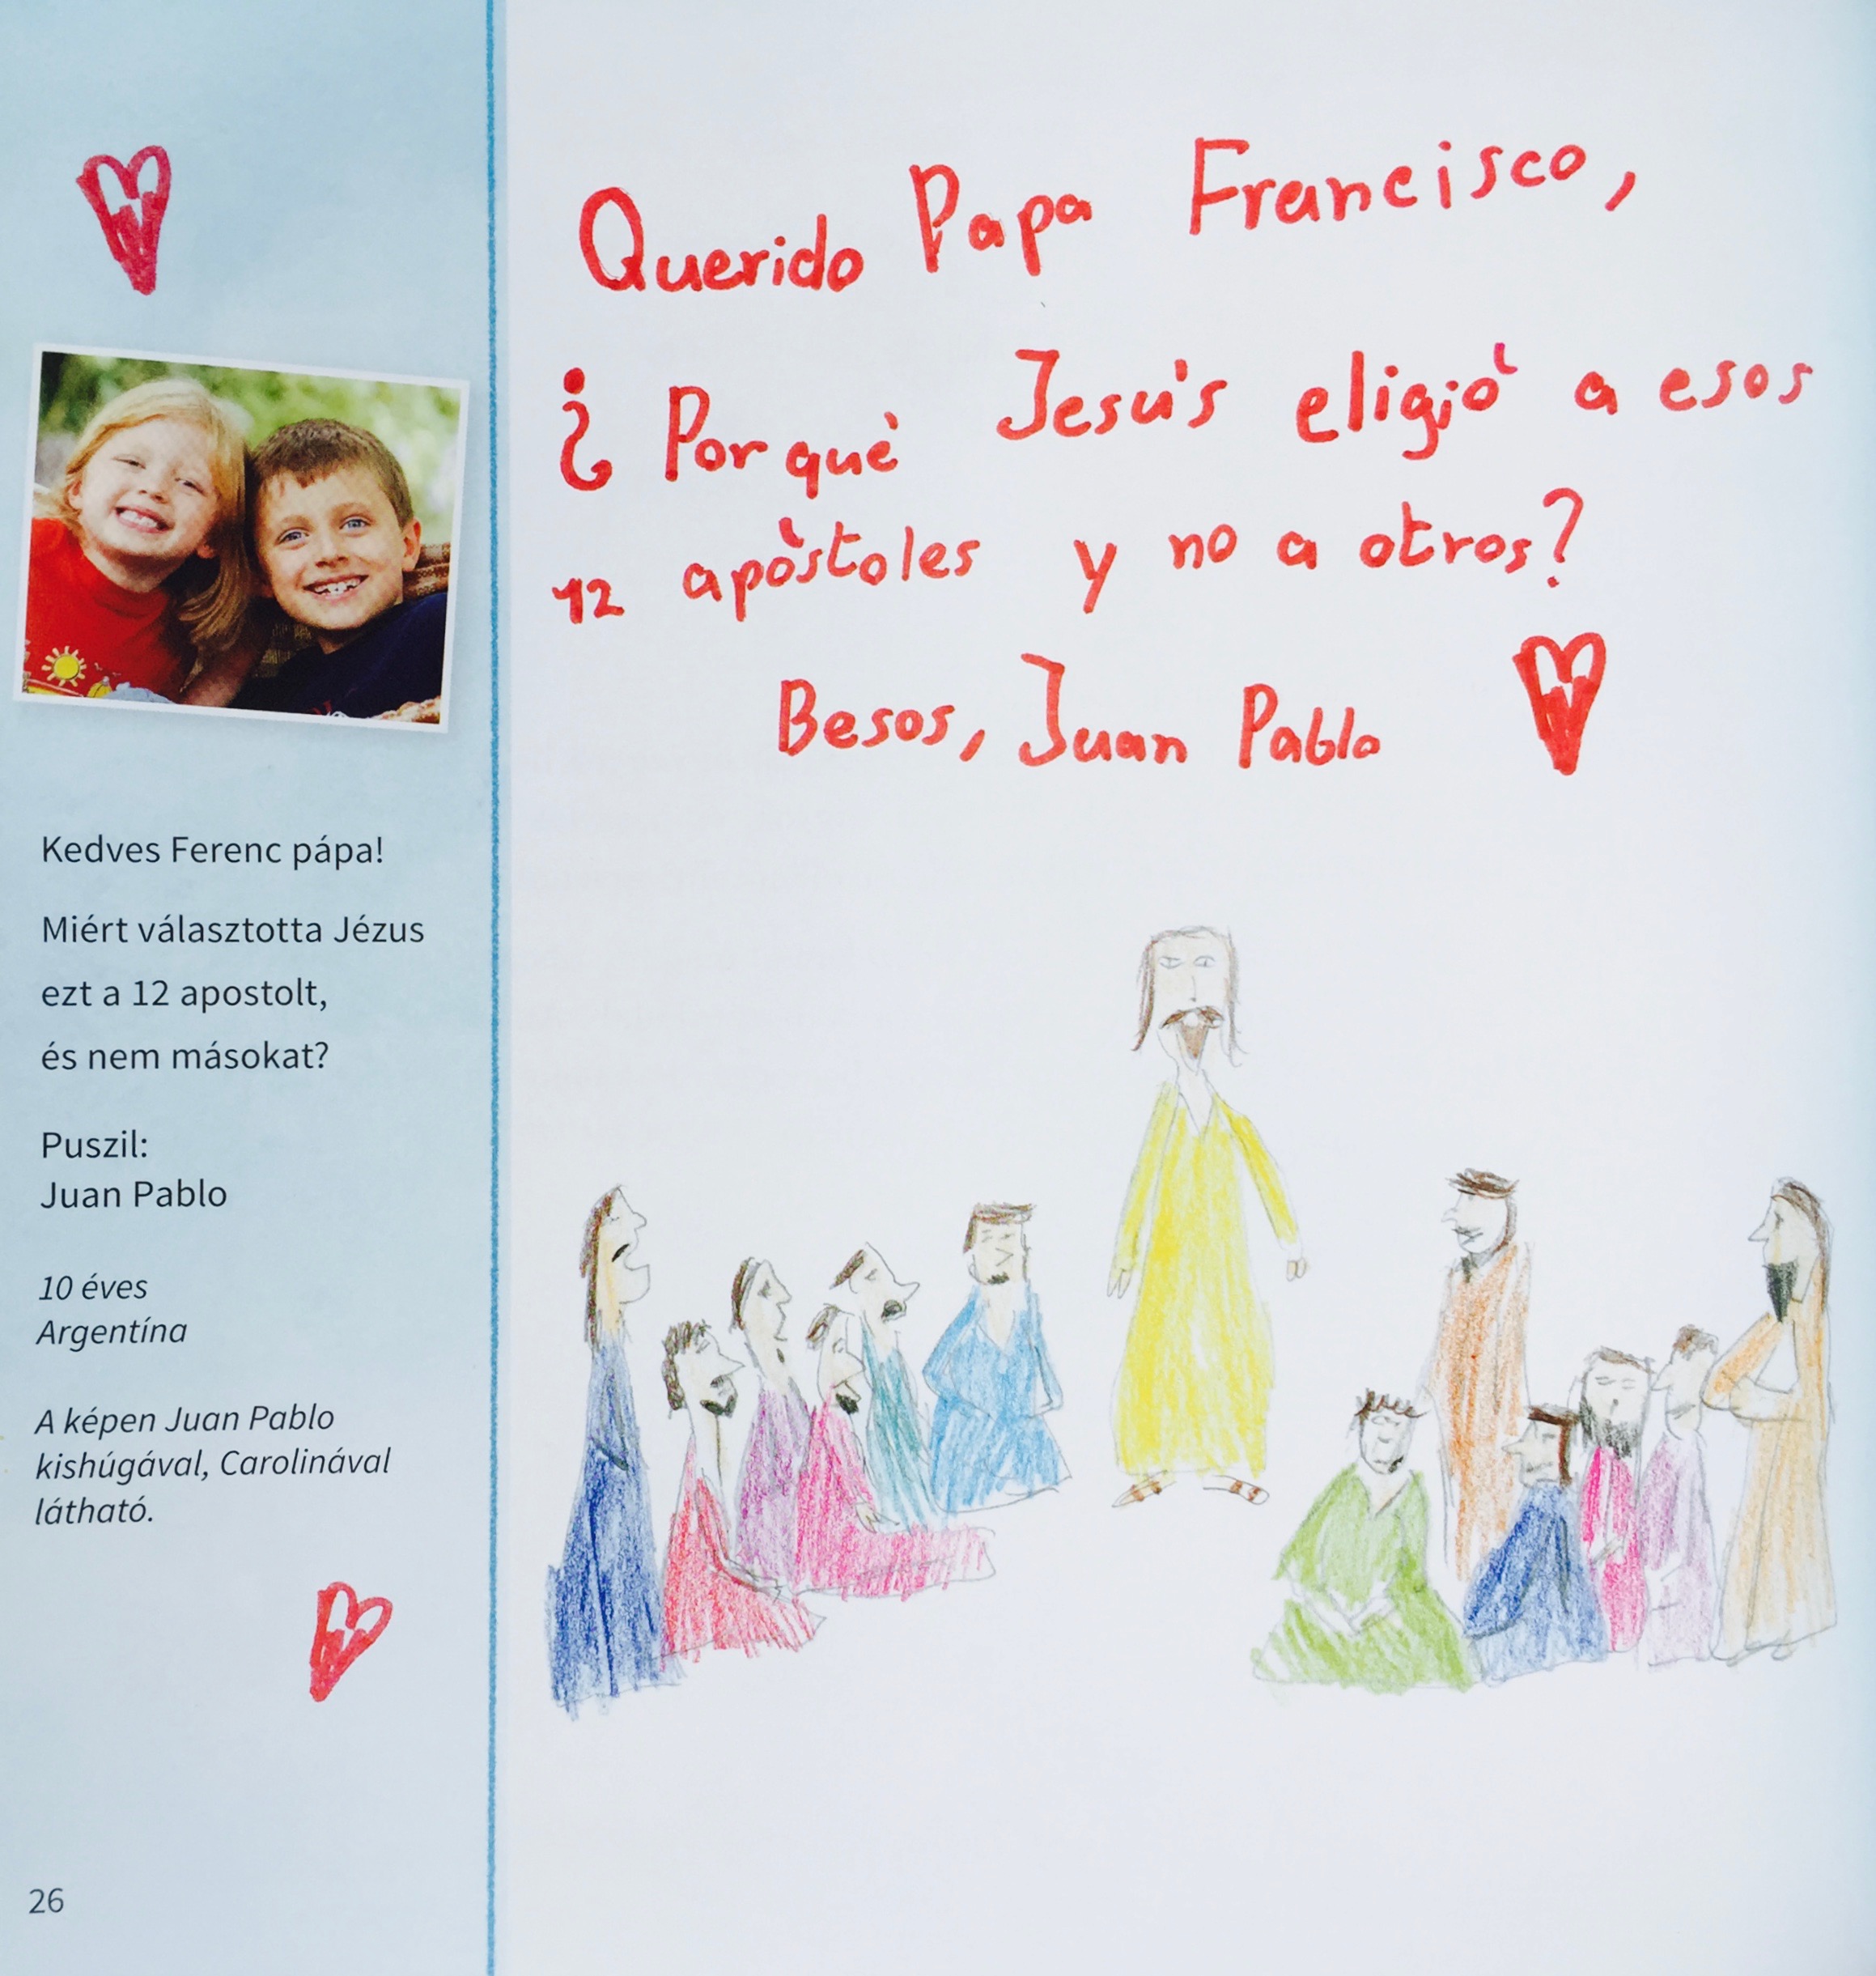 Querido Papa Francisco,
¿Por què Jesu's eligiò a esos
12 apòstoles y no a otros?
Besos, Juan Pablo
Kedves Ferenc pápa!
Miért választotta Jézus
ezt a 12 apostolt,
és nem másokat?
Puszil:
Juan Pablo
10 éves
Argentína
A képen Juan Pablo
kishúgával, Carolinával
látható.
26